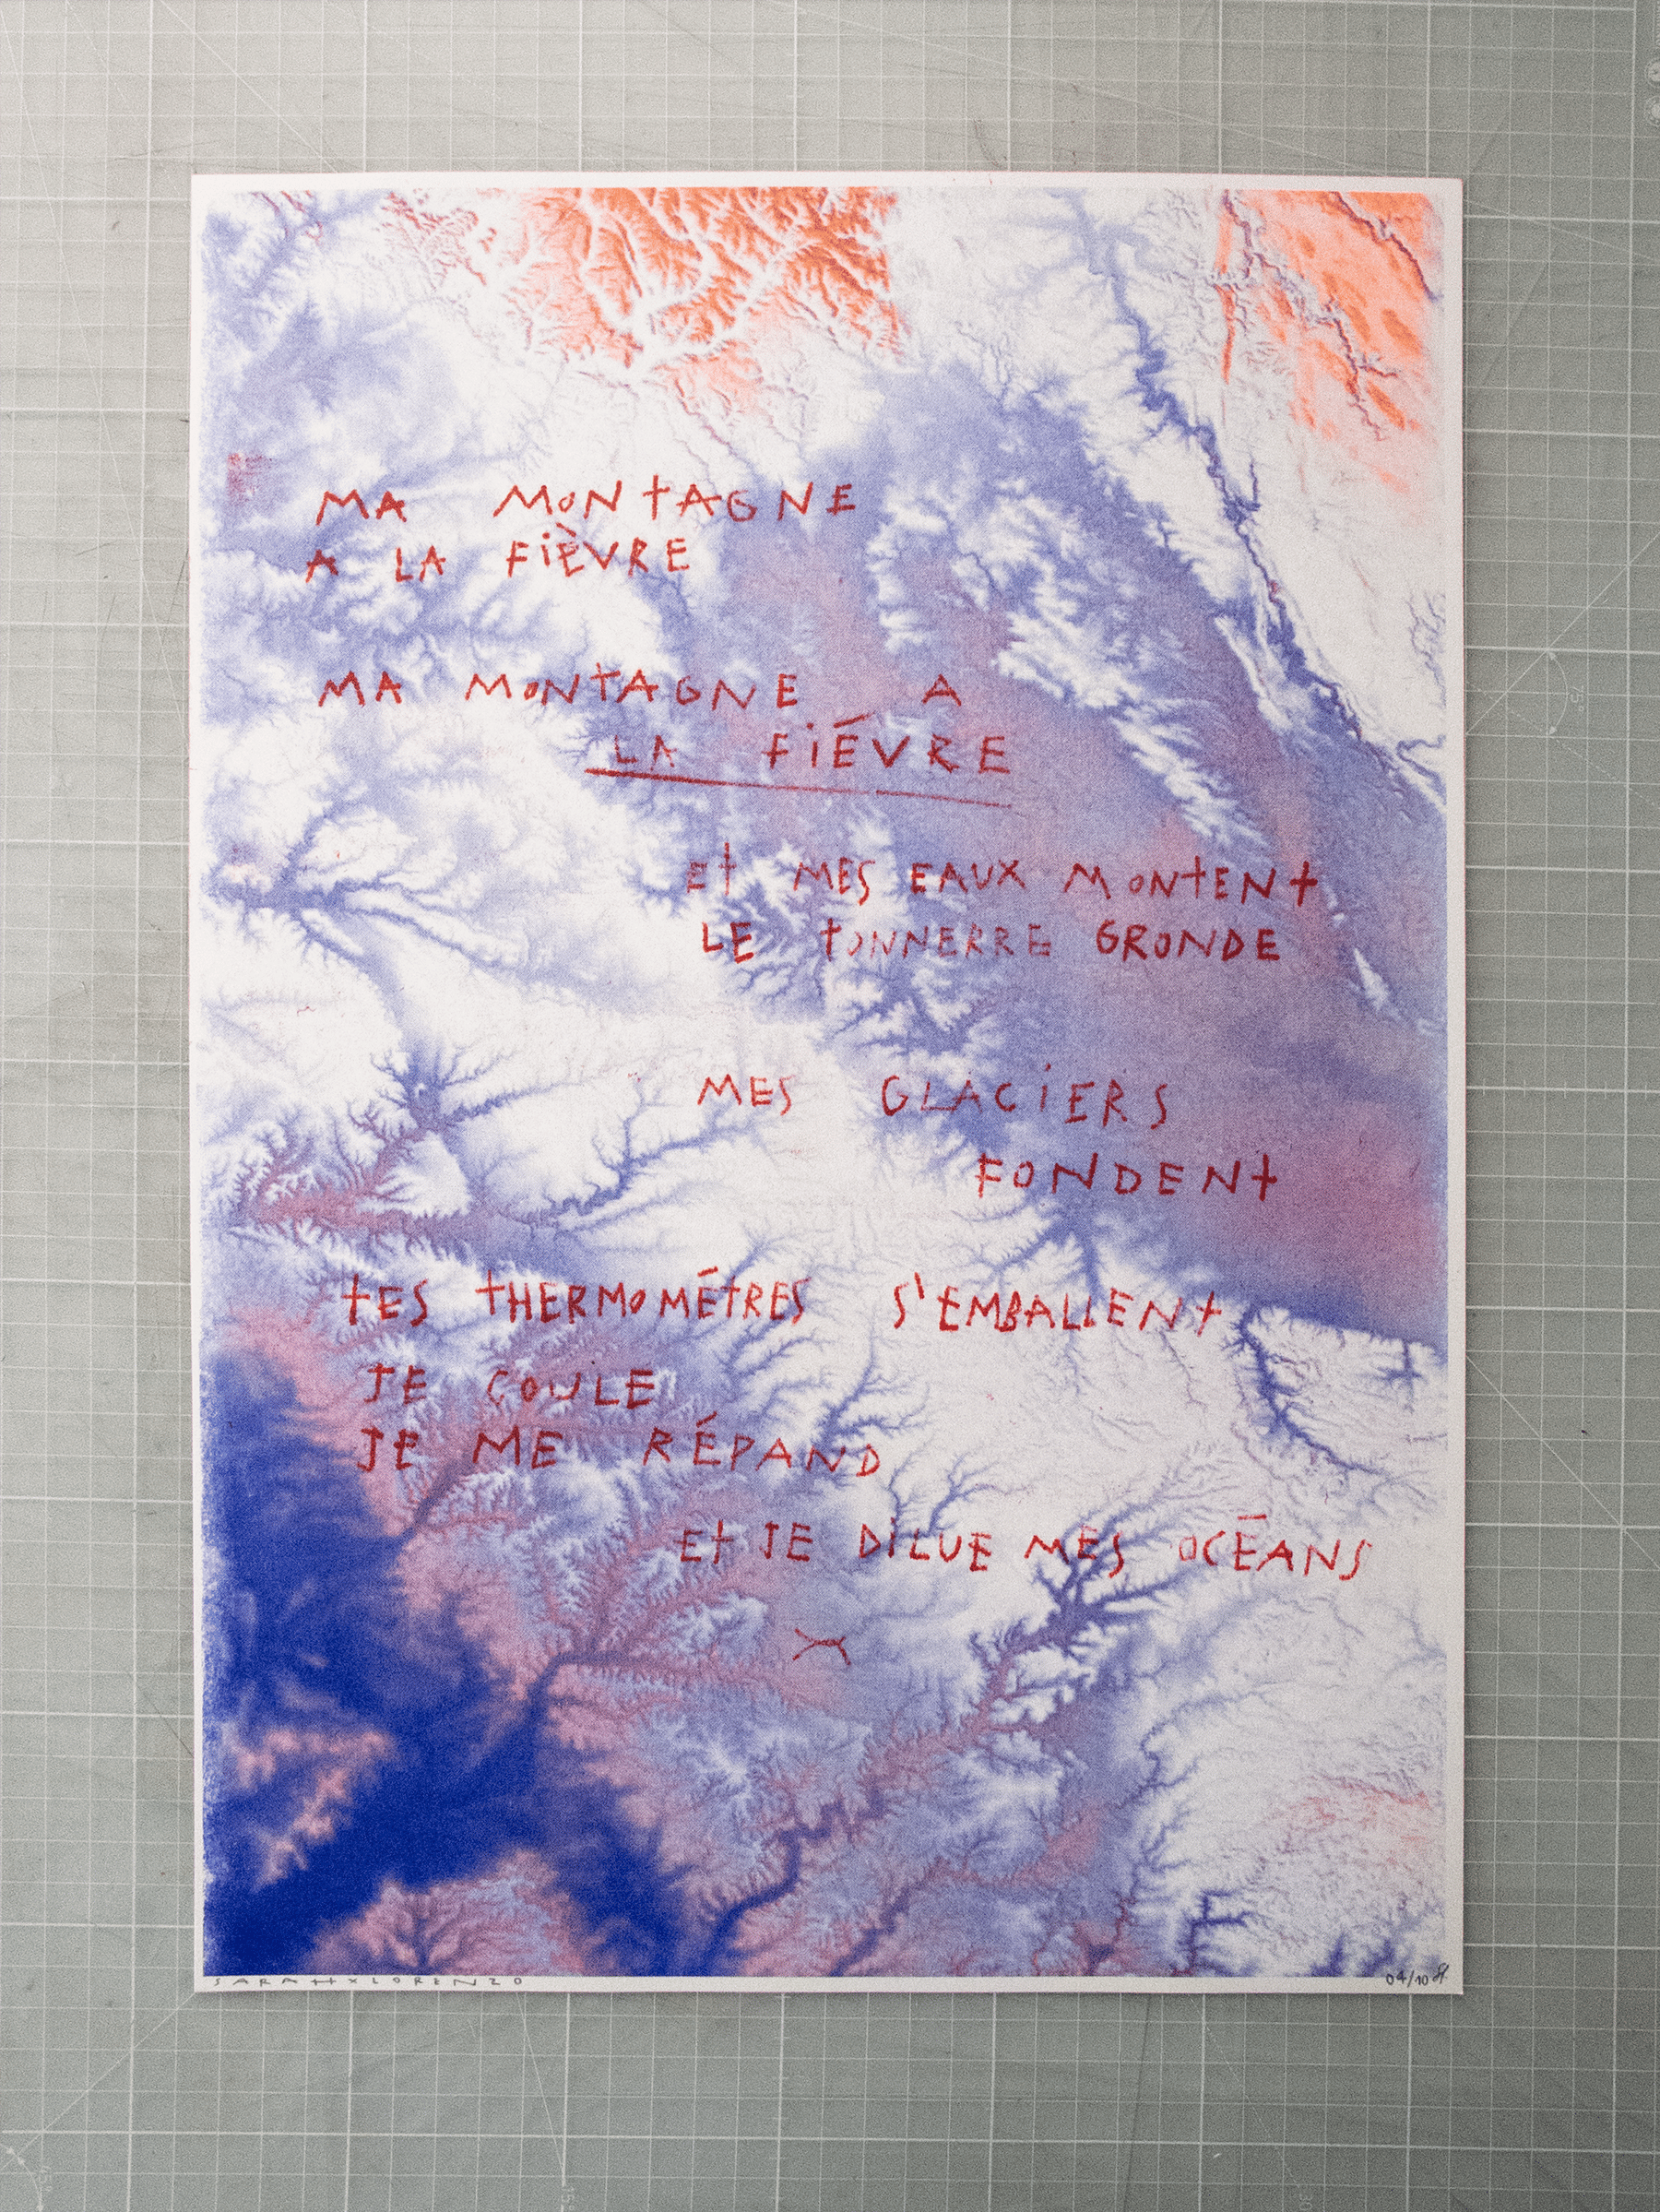 MA MONTAGNE
A LA FIÈVRE
MA MONTAGNE A
LA FIÉVRE
Et MES EAUX MONTENT
LE TONNERRE GRONDE
MES GLACIERS
FONDENT
TES THERMOMÉTRES S'EMBALLENT
JE COULE
JE ME RÉPAND
Et JE DILUE MES OCÉANS
SARAHXLORENZO
04/10